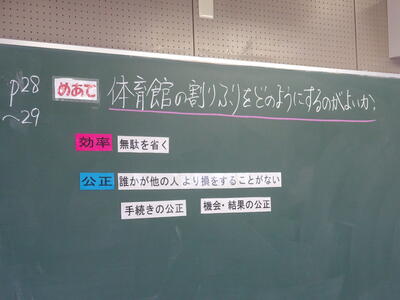 p28
～29
めあて 体育館の割りふりをどのようにするのがよいか。
効率 無駄を省く
公正 誰かが他の人より損をすることがない
手続きの公正 機会・結果の公正